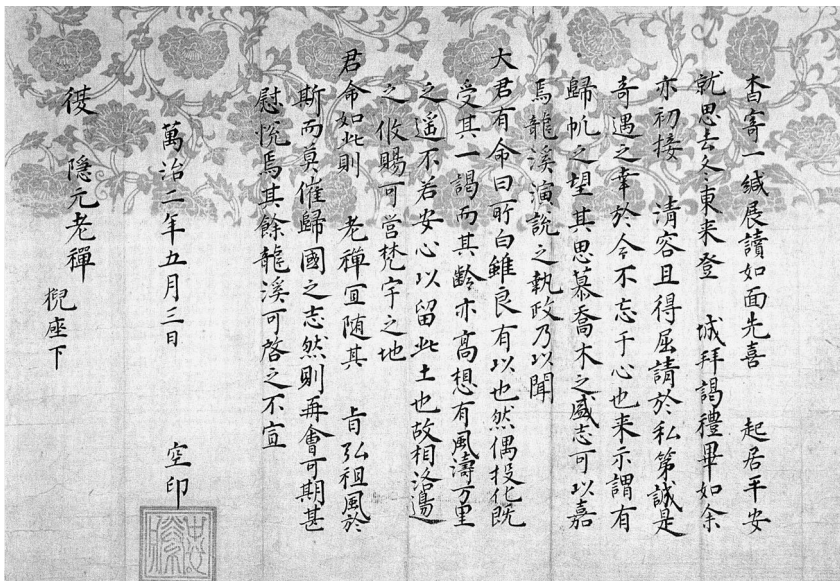 杳寄一緘展讀如面先喜　起居平安
就思去冬東来登　城拜謁禮畢如余
亦初接　清容且得屈請於私第誠是
奇遇之幸於今不忘于心也来示謂有
歸帆之望其思慕喬木之盛志可以嘉
焉龍溪演說之執政乃以聞
大君有命曰所白雖良有以也然偶投化既
受其一謁而其齡亦高想有風濤万里
之遥不若安心以留此土也故相洛邊
之攸賜可営梵宇之地
君命如此則　老禪宜随其　旨弘祖風於
斯而莫催歸國之志然則再會可期甚
慰悦焉其餘龍溪可啓之不宣
萬治二年五月三日　空印
復　隠元老禪
猊座下